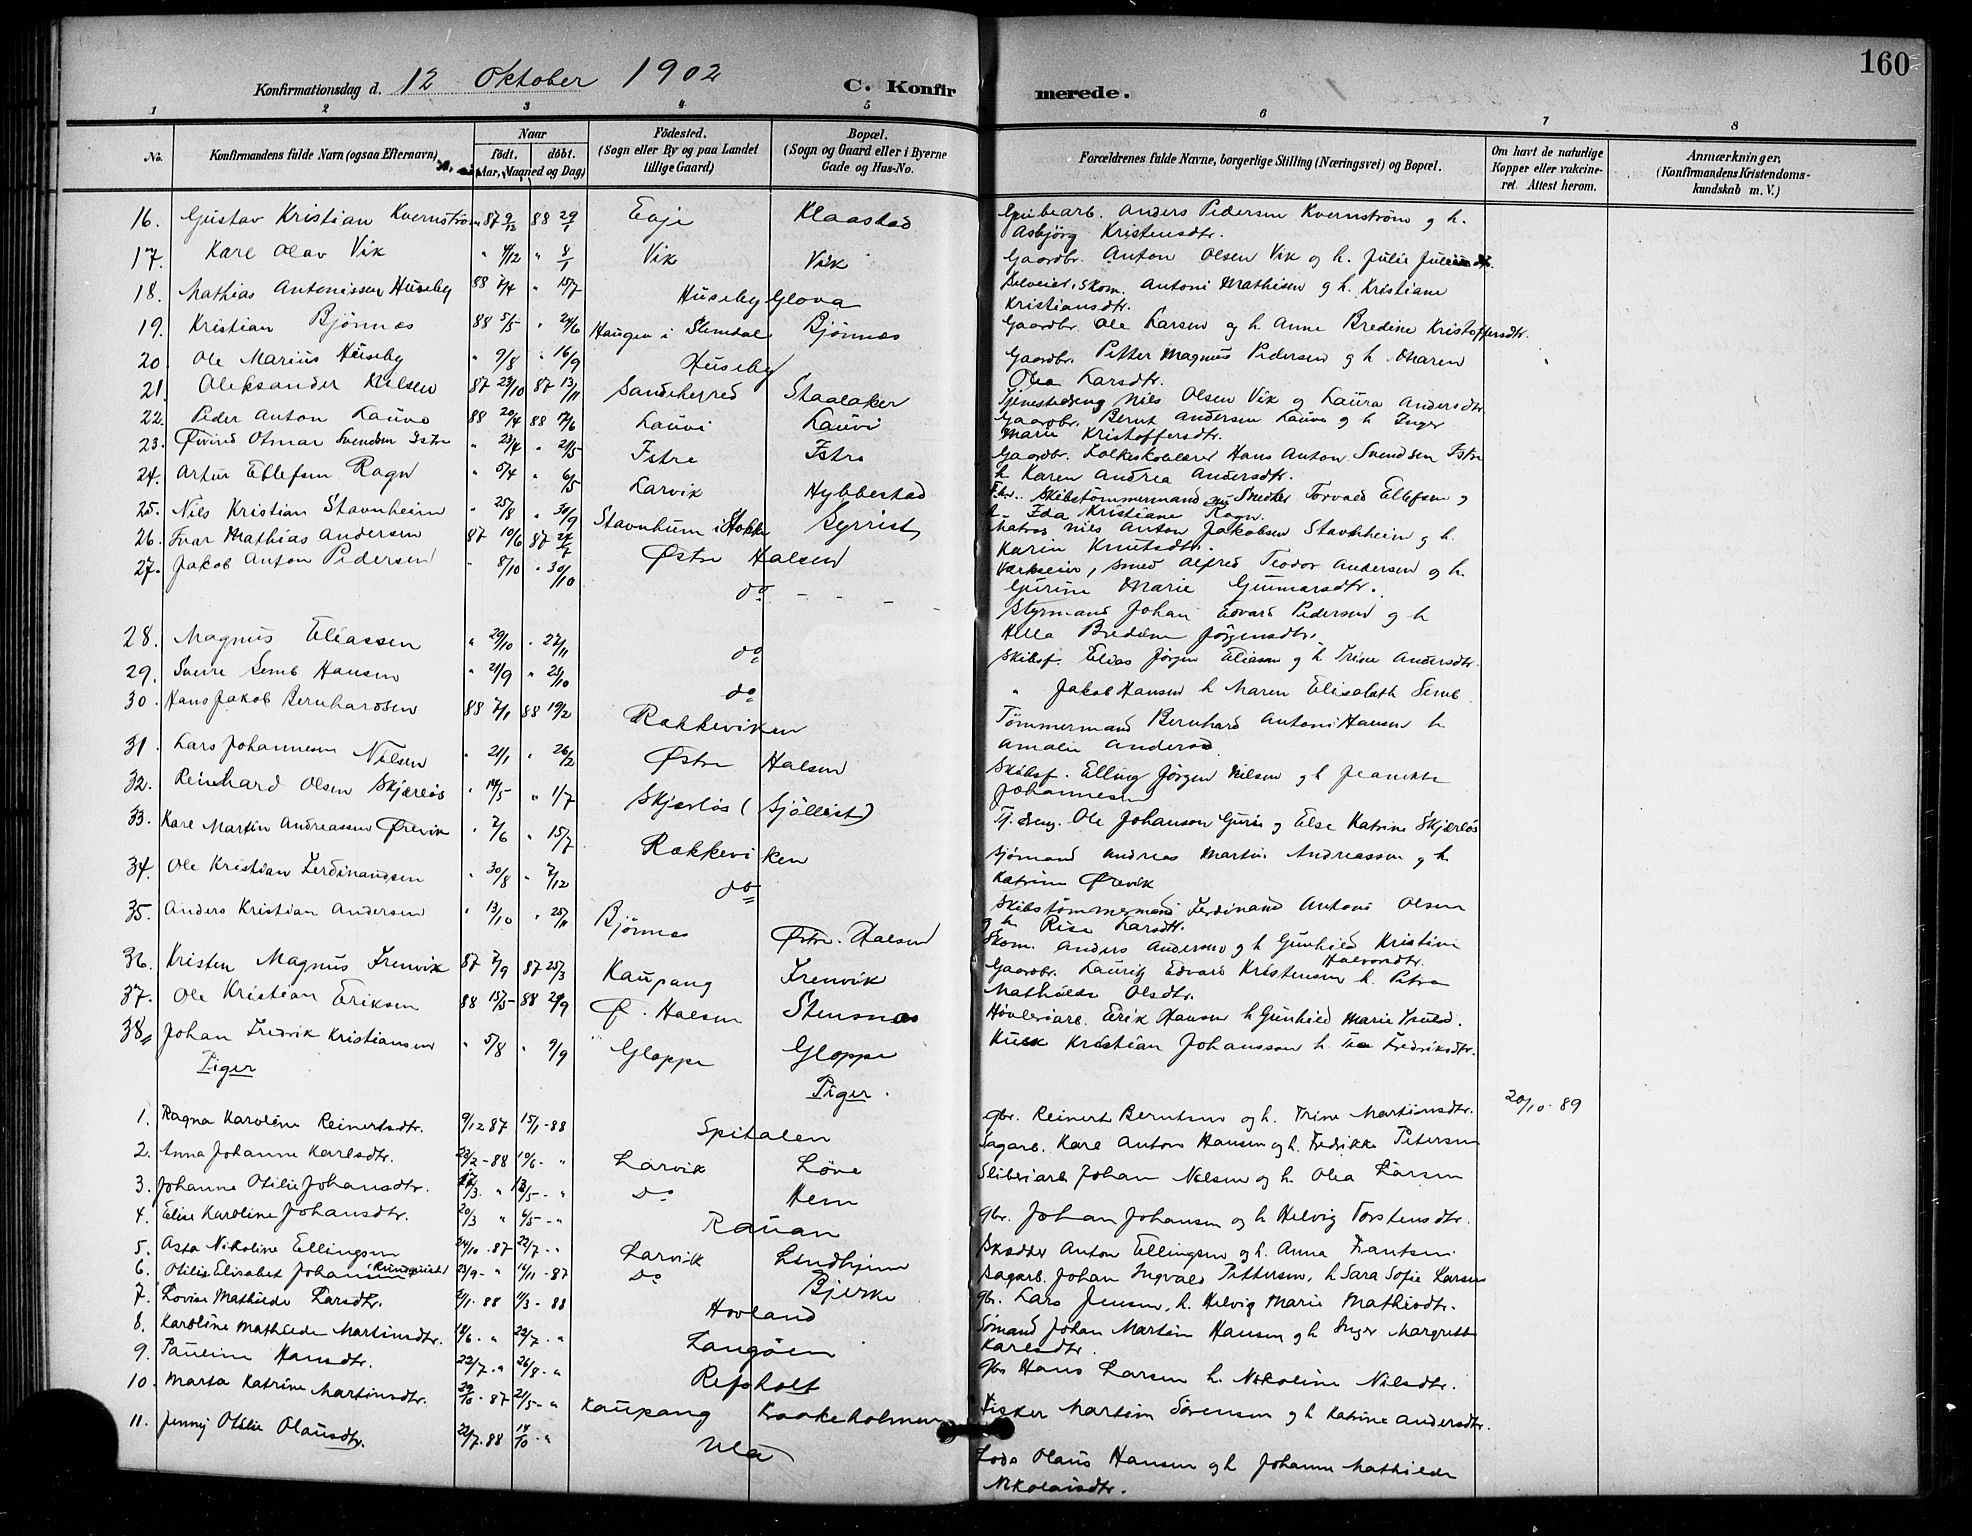 160
Konfirmationsdag d. 12 Oktober 1902 C. Konfirmerede.
1 2 3 4 5 6 7 8
No. Konfirmandens fulde Navn (ogsaa Efternavn). Naar født. døbt. (Aar, Maaned og Dag) Fødested. (Sogn eller By og paa Landet tillige Gaard) Bopæl. (Sogn og Gaard eller i Byerne Gade og Hus-No. Forældrenes fulde Navne, borgerlige Stilling (Næringsvei) og Bopæl. Om havt de naturlige Kopper eller vakcineret. Attest herom. Anmærkninger. (Konfirmandens Kristendomskundskab m. V.)
16. Gustav Kristian Kvernstrøm 87 9/12 88 29/1 Eeje Klaastad Anders Pedersen Kvernstrøm g h.
Asbjørg Kristensdtr.
17. Karl Olav Vik " 4/12 " 8/1 Vik Vik Gaardbr. Anton Olsen Vik og h. Julie
18. Mathias Antonissen Huseby 88 7/4 " 15/7 Huseby Glova Selveier, Skom. Antoni Mathisen g h. Kristiane
Kristiansdtr.
19. Kristian Bjønnes 88 5/5 " 24/6 Haugen i Slemdal Bjønnes Gaardbr. Ole Larsen og h. Anne Bredine Kristoffersdtr.
20. Ole Marius Huseby " 9/8 " 16/9 Huseby Gaardbr. Petter Magnus Pedersen g h. Maren
Olea Larsdtr.
21. Aleksander Nilsen 87 23/10 87 13/11 Sandeherred Staalaker Tjenestedreng Nils Olsen Vik og Laura Andersdtr.
22. Peder Anton Lauve 88 20/4 88 17/6 Lauvi Lauvi Gaardbr. Bernt Andersen Lauve og h Inger
Marie Kristoffersdtr.
23. Øivind Otmar Svendsen Istre " 23/4 " 21/5 Istre Istre Gaardbr. Folkeskolelærer Hans Anton Svendsen Istre
h. Karen Andrea Andersdtr.
24. Artur Ellefsen Ragn " 5/4 " 6/5 Larvik Hybbestad Fhv. Skibstømmermand nu Snedker Torvald Ellefsen g
h. Ida Kristiane Ragn.
25. Nils Kristian Stavnheim " 25/8 " 30/9 Stavnhum i Stokke Syrrist Matros Nils Anton Jakobsen Stavnheim g h.
Karin Knutsdtr.
26. Ivar Mathias Andersen 87 10/6 87 24/7 Østre Halsen Værkseier, Smed Alfred Teodor Andersen og h.
Gurine Marie Gunnarsdtr.
27. Jakob Anton Pedersen " 8/10 " 30/10 do - - - - Styrmand Johan Edvard Pedersen g h
Bredine Jørgensdtr.
28. Magnus Eliassen " 29/10 " 27/11 do Skibsf. Elias Jørgen Eliasen g h Trine Andersdtr.
29. Sverre Semb Hansen " 21/9 " 23/10 do " Jakob Hansen h Maren Elisabeth Semb
30. Hans Jakob Bernhardsen 88 7/1 88 19/2 Rakkeviken Tømmermand Bernhard Antoni Hansen h.
Amalie Andersd.
31. Lars Johannesen Nilsen " 21/1 " 26/2 Østre Halsen Skibsf. Elling Jørgen Nilsen g h Jeanette
Johannesen
32. Reinhard Olsen Skjærløs " 14/5 " 1/7 Skjærløs (Sjøllist) Tj. dreng. Ole Johanson Guri g Else Katrine Skjærløs
33. Karl Martin Andreassen Ørevik " 2/6 " 15/7 Rakkeviken Sjømand Andreas Martin Andreassen g h.
Katrine Ørevik
34. Ole Kristian Ferdinandsen " 30/8 " 7/12 do Skibstømmermand Ferdinand Antoni Olsen
g h Rise Larsdtr.
35. Anders Kristian Andersen " 13/10 " 25/11 Bjønnes Østre Halsen Skom. Anders Andersen g h Gunhild Kristine
Halvorsdtr.
36. Kristen Magnus Frenvik 87 7/9 87 25/3 Kaupang Frenvik Gaardbr. Lauritz Edvard Kristensen h. Petra
Mathilde Olsdtr.
37. Ole Kristian Eriksen 88 15/5 88 29/9 Ø. Halsen Stensnes Høvleriarb. Erik Hansen h Gunhild Marie
38. Johan Fredrik Kristiansen " 5/8 " 9/9 Gloppe Gloppe Kusk Kristian Johansson h. Fredriksdtr.
Piger Piger.
1. Ragna Karoline Reinertsdtr. 9/12 87 15/1-88 Spitalen gbr. Reinert Berntsen og h. Trine Martinsdtr. 20/10 - 89
2. Anna Johanne Karlsdtr. 23/2-88 10/6 - " Larvik Løve Sagarb. Karl Anton Hansen og h. Fredrikke Petersen
3. Johanne Otilie Johansdtr. 17/3 " 13/5 - " Do Hem Sliberiarb Johan Nilsen og h. Olea Larsen
4. Elise Karoline Johansdtr. 20/3 " 6/5 - " Rauan gbr. Johan Johansen og h Helvig Torstensdtr.
5. Asta Nikoline Ellingsen 24/10 - 87 22/7 - " Larvik Lindhjem Skrædder Anton Ellingsen og h. Anna Frantsen
6. Otilie Elisabet Johansen 23/9 - " 14/11 - 87 Do Bjerke Sagarb. Johan Ingvald Pettersen, h Sara Sofie Larsen
7. Lovise Mathilde Larsdtr. 2/1 - 88 11/3 - 88 Hovland gbr. Lars Jensen, h. Helvig Marie Mathisdtr.
8. Karoline Mathilde Martinsdtr. 18/6 - " 22/7 - " Langøen Sømand Johan Martin Hansen g h Inger Margrethe
Karlsdtr.
9. Pauline Hansdtr. 22/7 - " 26/8 - " Refsholt gbr Hans Larsen h. Nikoline Nilsdtr.
10. Marta Katrine Martinsdtr. 29/10 - 87 21/5 - " Kaupang Kraakeholmen Fisker Martin Sørensen og h Katrine Andersdtr.
11. Jenny Otilie Olausdtr. 22/7 - 88 14/10 - " Ula Lods Olaus Hansen og h Johanne Mathilde
Nikolaisdtr.